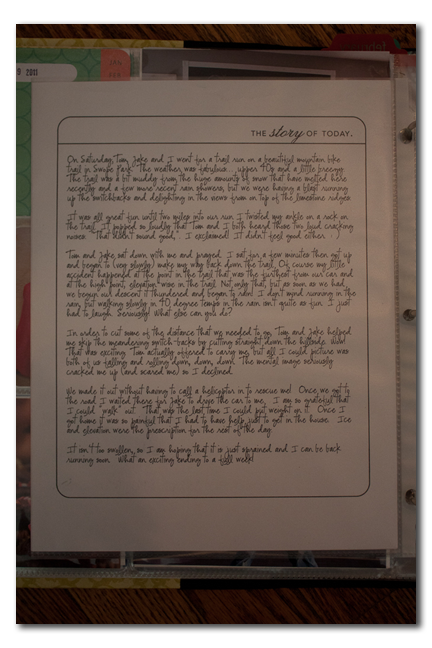 2011
THE story OF TODAY.
On Saturday, Tom, Jake and I went for a trail run on a beautiful mountain bike
trail in Swope Park. The weather was fabulous... upper 40s and a little breezy.
The trail was a bit muddy from the huge amounts of snow that have melted here
recently and a few more recent rain showers, but we were having a blast running
up the switchbacks and delighting in the views from on top of the limestone ridges.
It was all great fun until two miles into our run I twisted my ankle on a rock on
the trail. It popped so loudly that Tom and I both heard those two loud cracking
noises. "That didn't sound good," I exclaimed! It didn't feel good either. : )
Tom and Jake sat down with me and prayed. I sat for a few minutes then got up
and began to (very slowly) make my way back down the trail. Of course my little
accident happened at the point in the trail that was the furthest from our car and
at the high point, elevation-wise in the trail. Not only that, but as soon as we had
we begun our descent it thundered and began to rain! I don't mind running in the
rain, but walking slowly in 40 degree temps in the rain isn't quite as fun. I just
had to laugh. Seriously! What else can you do?
In order to cut some of the distance that we needed to go, Tom and Jake helped
me skip the meandering switch-backs by cutting straight down the hillside. Wow!
That was exciting. Tom actually offered to carry me, but all I could picture was
both of us falling and rolling down, down, down. The mental image seriously
cracked me up (and scared me) so I declined.
We made it out without having to call a helicopter in to rescue me! Once we got to
the road I waited there for Jake to drive the car to me. I am so grateful that
I could "walk" out. That was the last time I could put weight on it. Once I
got home it was so painful that I had to have help just to get in the house. Ice
and elevation were the prescription for the rest of the day.
It isn't too swollen, so I am hoping that it is just sprained and I can be back
running soon. What an exciting ending to a full week!